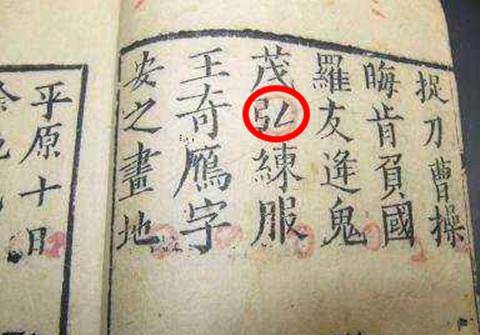 捉刀曹操
晦肯負國
羅友逢鬼
茂弘練服
王奇鴈字
安之畫地
平原十日